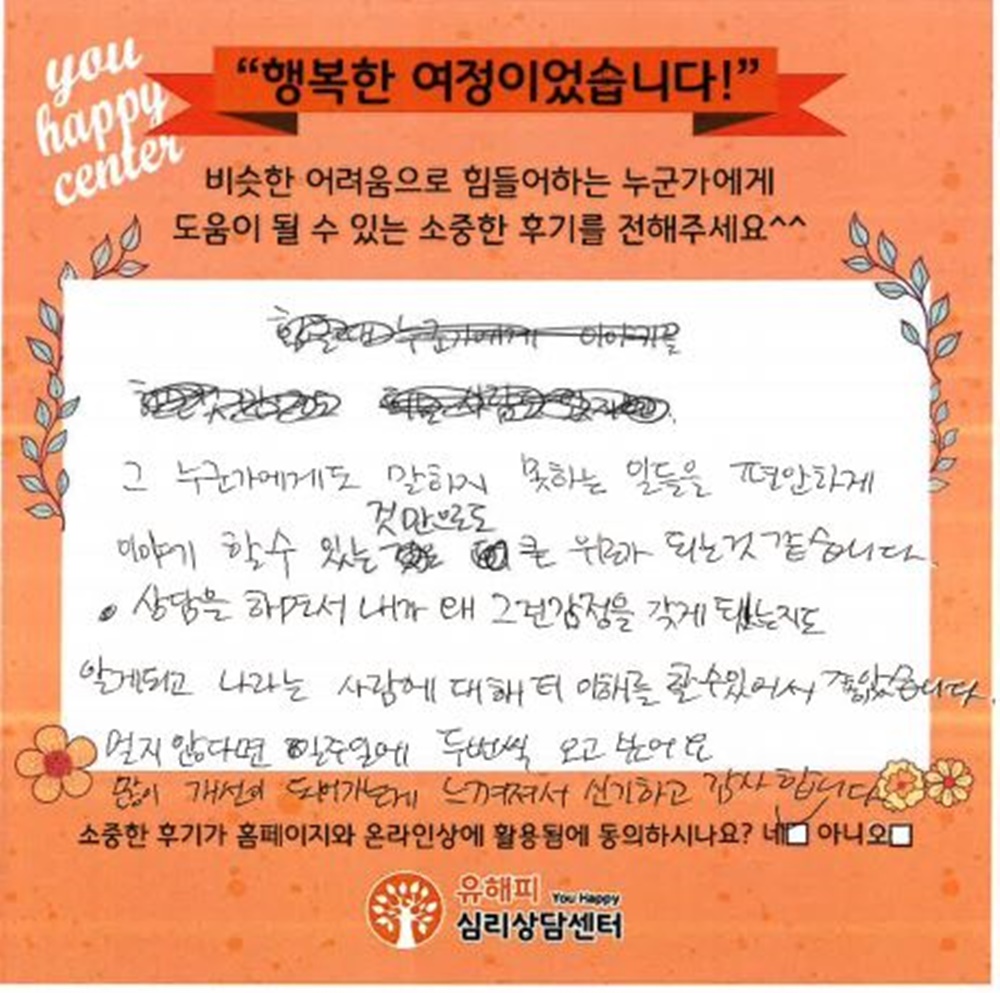 you
happy
center
“행복한 여정이었습니다!”
비슷한 어려움으로 힘들어하는 누군가에게
도움이 될 수 있는 소중한 후기를 전해주세요^^
누군가에게 이야기를
그 누군가에게도 말하지 못하는 일들을 편안하게
것만으로도
이야기 할수 있는 큰 위로가 되는것 같습니다.
상담을 하면서 내가 왜 그런감정을 갖게 됐는지도
알게되고 나라는 사람에 대해 더 이해를 할수있어서 좋았습니다.
멀지 않다면 일주일에 두번씩 오고 싶어요
많이 개선이 되어가는게 느껴져서 신기하고 감사합니다
소중한 후기가 홈페이지와 온라인상에 활용됨에 동의하시나요? 네 아니오
유해피 You Happy
심리상담센터